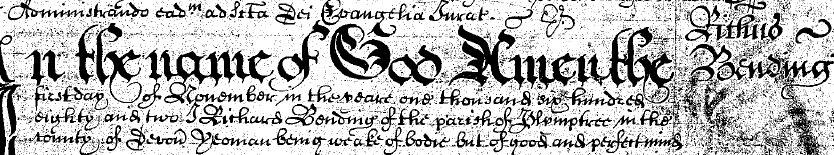 Administrando ead^m ad s^ta Dei Evangelia Jurat.
In the name of God Amen the
first day of November in the yeare one thousand six hundred
eighty and two I Richard Bending of the parish of Plymptree in the
County of Devon Yeoman being weake of bodie but of good and perfect mind
Bending